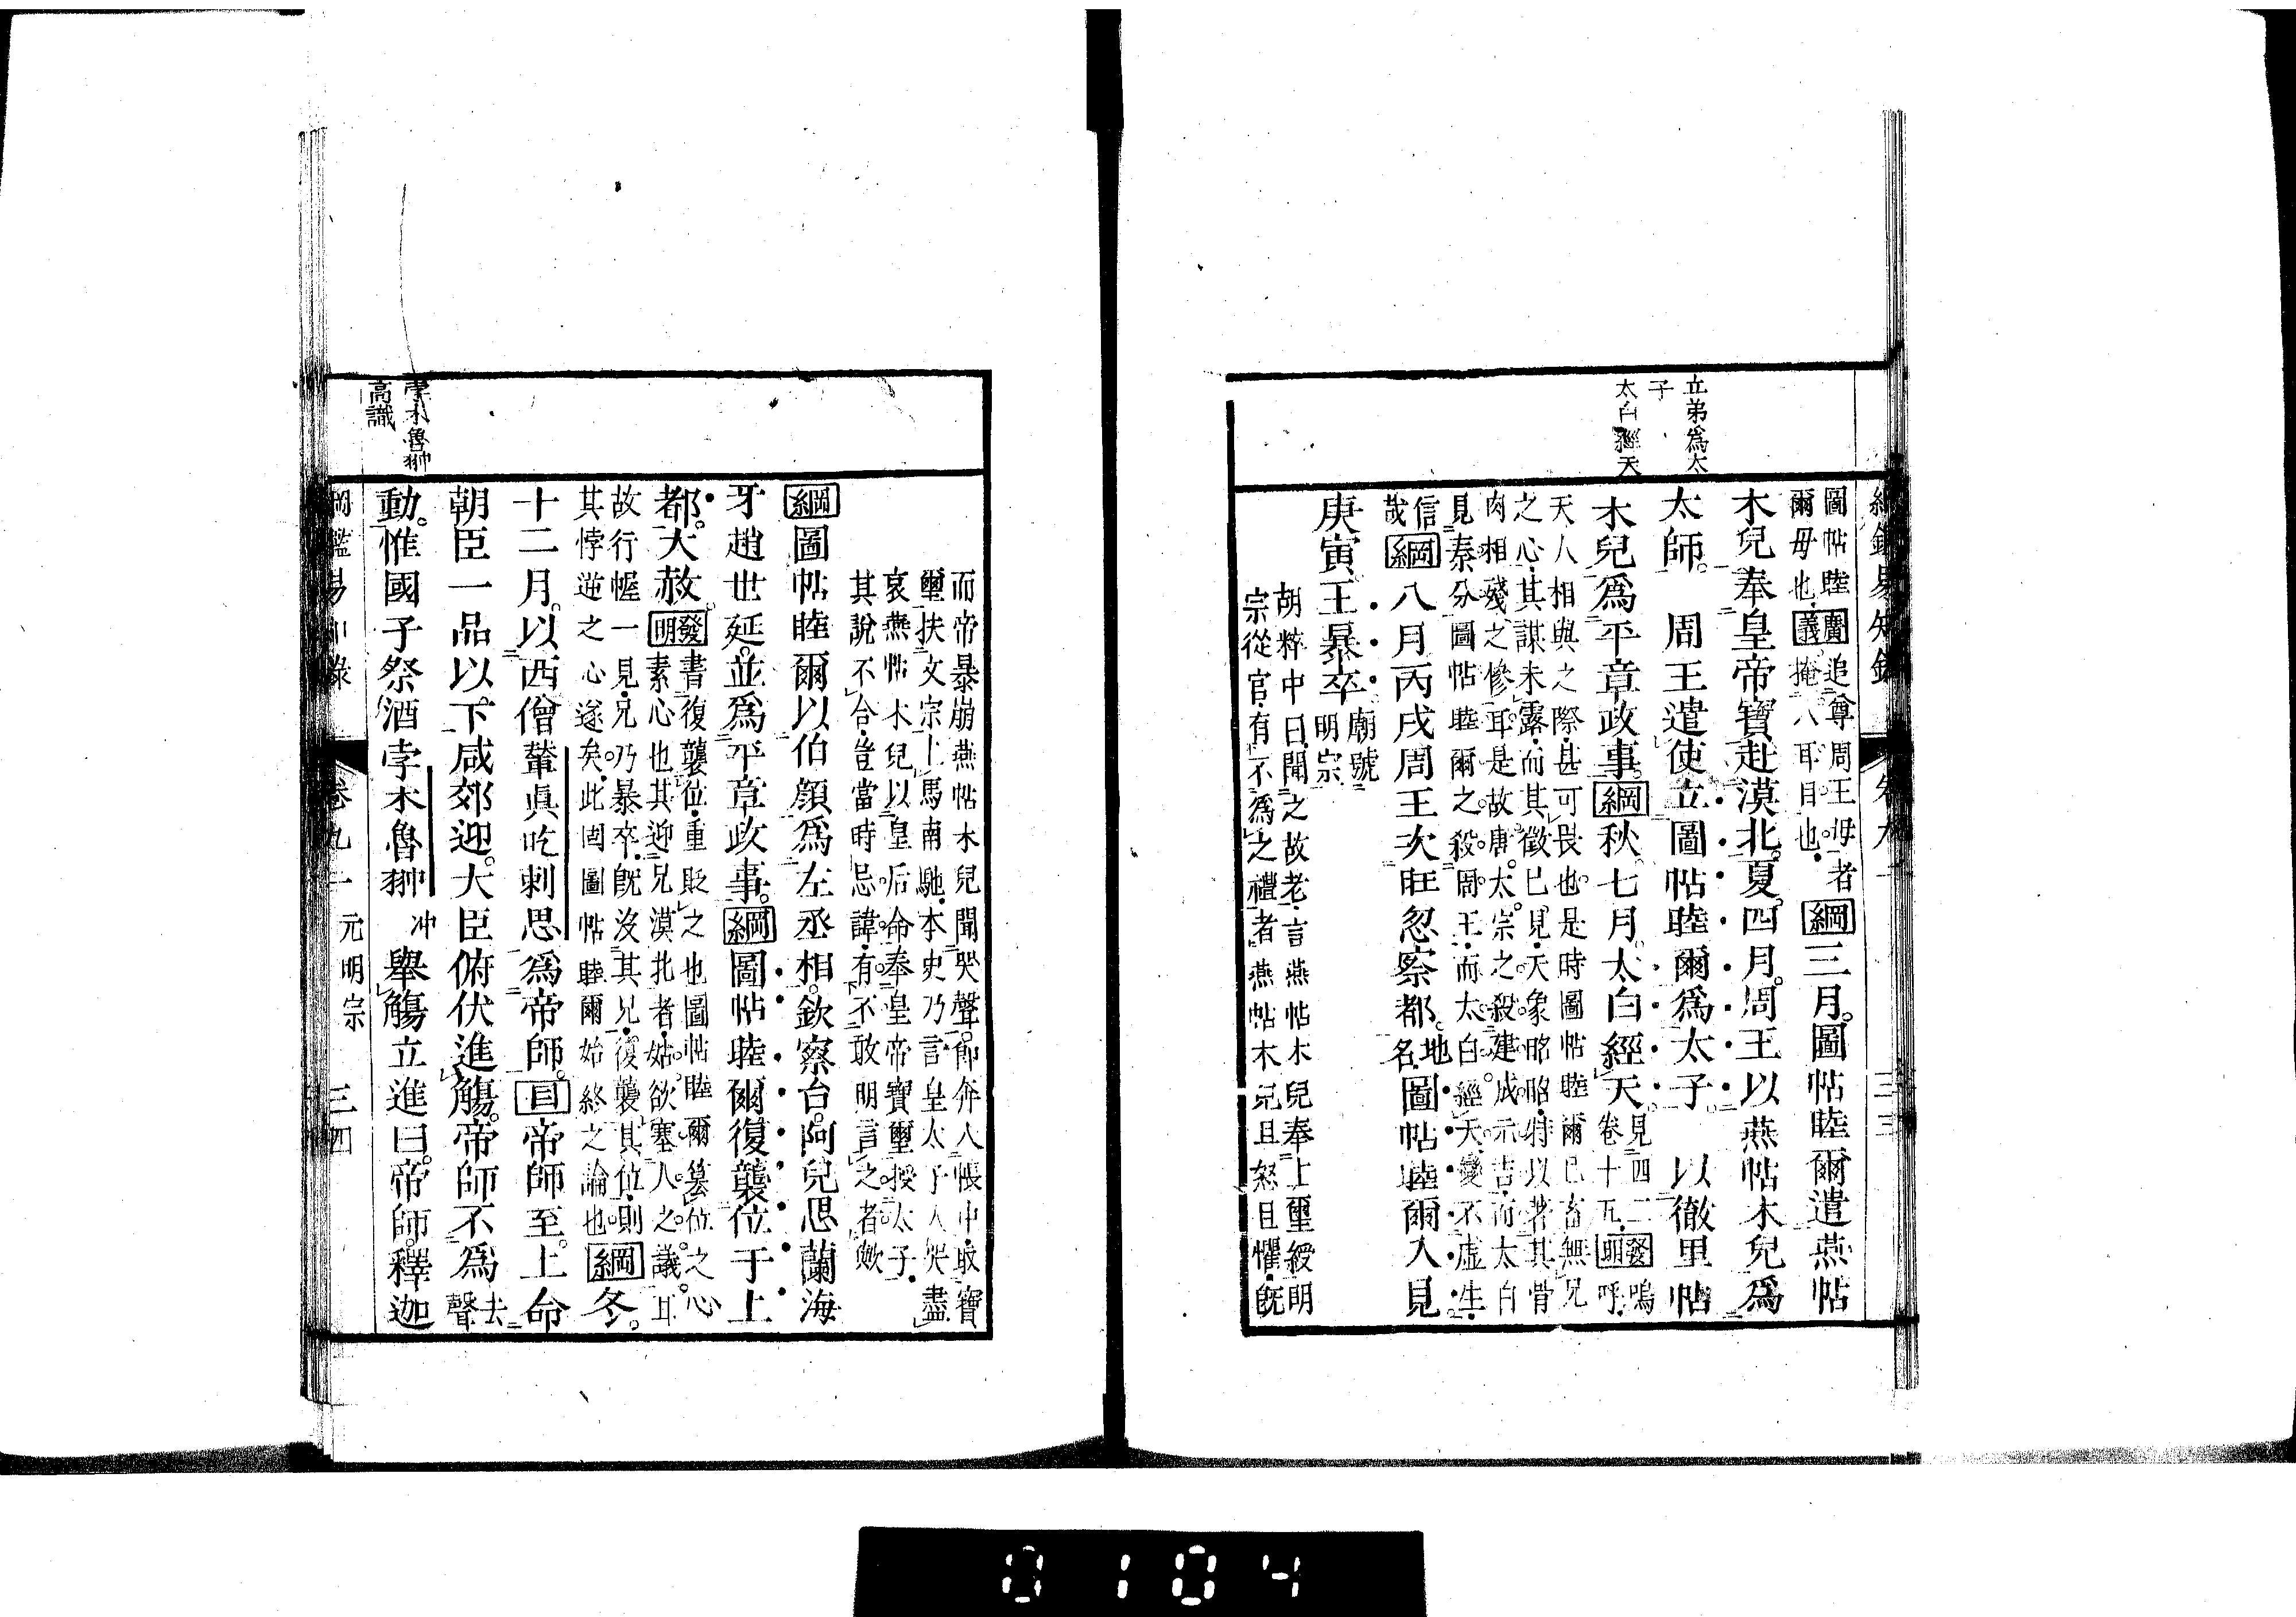 立弟爲太
子
太白經天
圖帖睦
爾母也
廣義
追尊周王母者
掩人耳目也
綱三月圖帖睦爾遣燕帖
木兒奉皇帝寶赴漠北夏四月周王以燕帖木兒爲
太師 周王遣使立圖帖睦爾爲太子 以徹里帖
木兒爲平章政事綱秋七月太白經天
見四二
卷十五
發明
嗚
呼
天人相與之際甚可畏也是時圖帖睦爾已畜無兄
之心其謀未露而其徵已見天象昭昭特以著其骨
肉相殘之慘耳是故唐太宗之殺建成元吉而太白
見秦分圖帖睦爾之殺周王而太白經天變不虛生
信
哉
綱八月丙戌周王次旺忽察都
地
名
圖帖睦爾入見
庚寅王暴卒
廟號
明宗
胡粹中曰聞之故老言燕帖木兒奉上璽綬明
宗從官有不爲之禮者燕帖木兒且怒且懼旣
而帝暴崩燕帖木兒聞哭聲卽奔入帳中取寶
璽扶文宗上馬南馳本史乃言皇太子入哭盡
哀燕帖木兒以皇后命奉皇帝寶璽授太子
其說不合豈當時忌諱有不敢明言之者歟
綱圖帖睦爾以伯顏爲左丞相欽察台阿兒思蘭海
牙趙世延並爲平章政事綱圖帖睦爾復襲位于上
都大赦
發明
書復襲位重貶之也圖帖睦爾簒位之心
素心也其迎兄漠北者姑欲塞人之議耳
故行幄一見兄乃暴卒旣沒其兄復襲其位則
其悖逆之心遂矣此固圖帖睦爾始終之論也
綱冬
十二月以西僧輦眞吃剌思爲帝師目帝師至上命
朝臣一品以下咸郊迎大臣俯伏進觴帝師不爲
去
聲
動惟國子祭酒孛木魯翀
冲
舉觴立進曰帝師釋迦
孛木魯翀
高識
卷九一 元明宗 三四